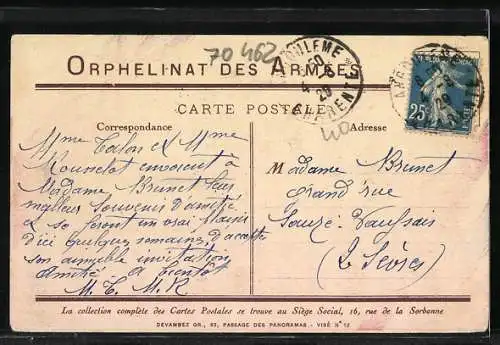 70 462
ORPHELINAT DES ARMÉES
CARTE POSTALE
Correspondance
Adresse
25
CHARENTE
40
Mme Talon et Mme
envoient à
Madame Brunet leur
meilleur Souvenir d'amitié
et se feront un vrai plaisir
d'ici quelque semaine, d'accepter
son aimable invitation
Amitié à bientôt
M. T. M. R
Madame Brunet
grand rue
Sauzé-Vaussais
(2 Sèvres)
La collection complète des Cartes Postales se trouve au Siège Social, 16, rue de la Sorbonne
DEVAMBEZ GR., 63, PASSAGE DES PANORAMAS - VISÉ N° 12